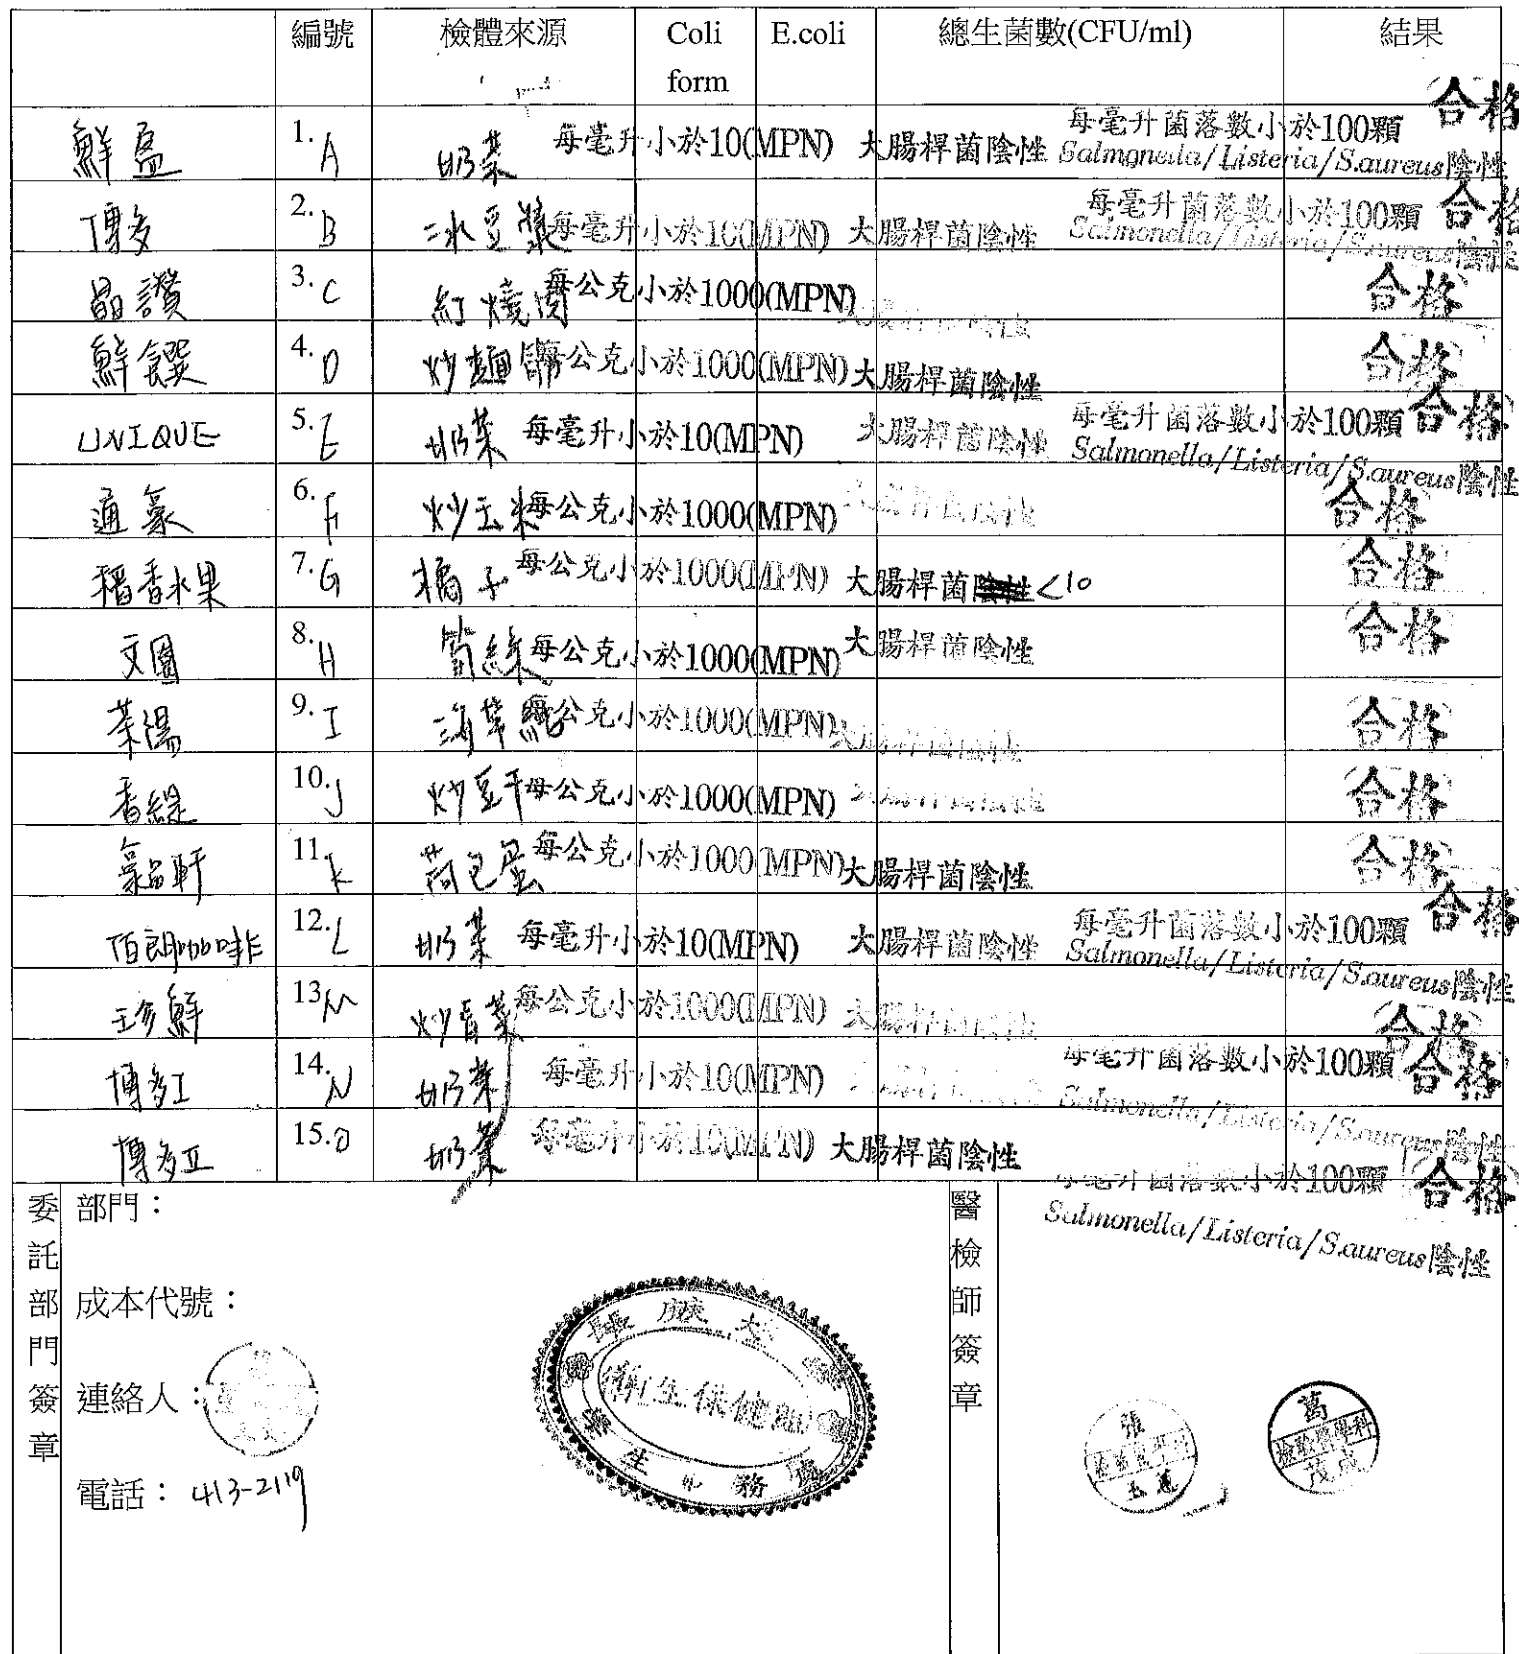 編號 檢體來源 Coli form E.coli 總生菌數(CFU/ml) 結果
鮮盈 1. A 奶茶 每毫升小於10(MPN) 大腸桿菌陰性 每毫升菌落數小於100顆 Salmonella/Listeria/S.aureus陰性 合格
博多 2. B 冰豆漿 每毫升小於10(MPN) 大腸桿菌陰性 每毫升菌落數小於100顆 Salmonella/Listeria/S.aureus陰性 合格
晶讚 3. C 紅燒肉 每公克小於1000(MPN) 大腸桿菌陰性 合格
鮮饌 4. D 炒麵 每公克小於1000(MPN) 大腸桿菌陰性 合格
UNIQUE 5. E 奶茶 每毫升小於10(MPN) 大腸桿菌陰性 每毫升菌落數小於100顆 Salmonella/Listeria/S.aureus陰性 合格
通豪 6. F 炒玉米 每公克小於1000(MPN) 大腸桿菌陰性 合格
稻香水果 7. G 橘子 每公克小於1000(MPN) 大腸桿菌 <10 合格
文園 8. H 筍絲 每公克小於1000(MPN) 大腸桿菌陰性 合格
茶湯 9. I 海芽 每公克小於1000(MPN) 大腸桿菌陰性 合格
香緹 10. J 炒豆干 每公克小於1000(MPN) 大腸桿菌陰性 合格
豪品軒 11. K 荷包蛋 每公克小於1000(MPN) 大腸桿菌陰性 合格
佰朗咖啡 12. L 奶茶 每毫升小於10(MPN) 大腸桿菌陰性 每毫升菌落數小於100顆 Salmonella/Listeria/S.aureus陰性 合格
珍鮮 13. M 炒青菜 每公克小於1000(MPN) 大腸桿菌陰性 合格
博多I 14. N 奶茶 每毫升小於10(MPN) 大腸桿菌陰性 每毫升菌落數小於100顆 Salmonella/Listeria/S.aureus陰性 合格
博多II 15. O 奶茶 每毫升小於10(MPN) 大腸桿菌陰性 每毫升菌落數小於100顆 Salmonella/Listeria/S.aureus陰性 合格
委託部門簽章
部門：
成本代號：
連絡人：
電話：413-2119
長庚大
衛生保健組
學生事務處
醫檢師簽章
張
萬
檢驗醫學科